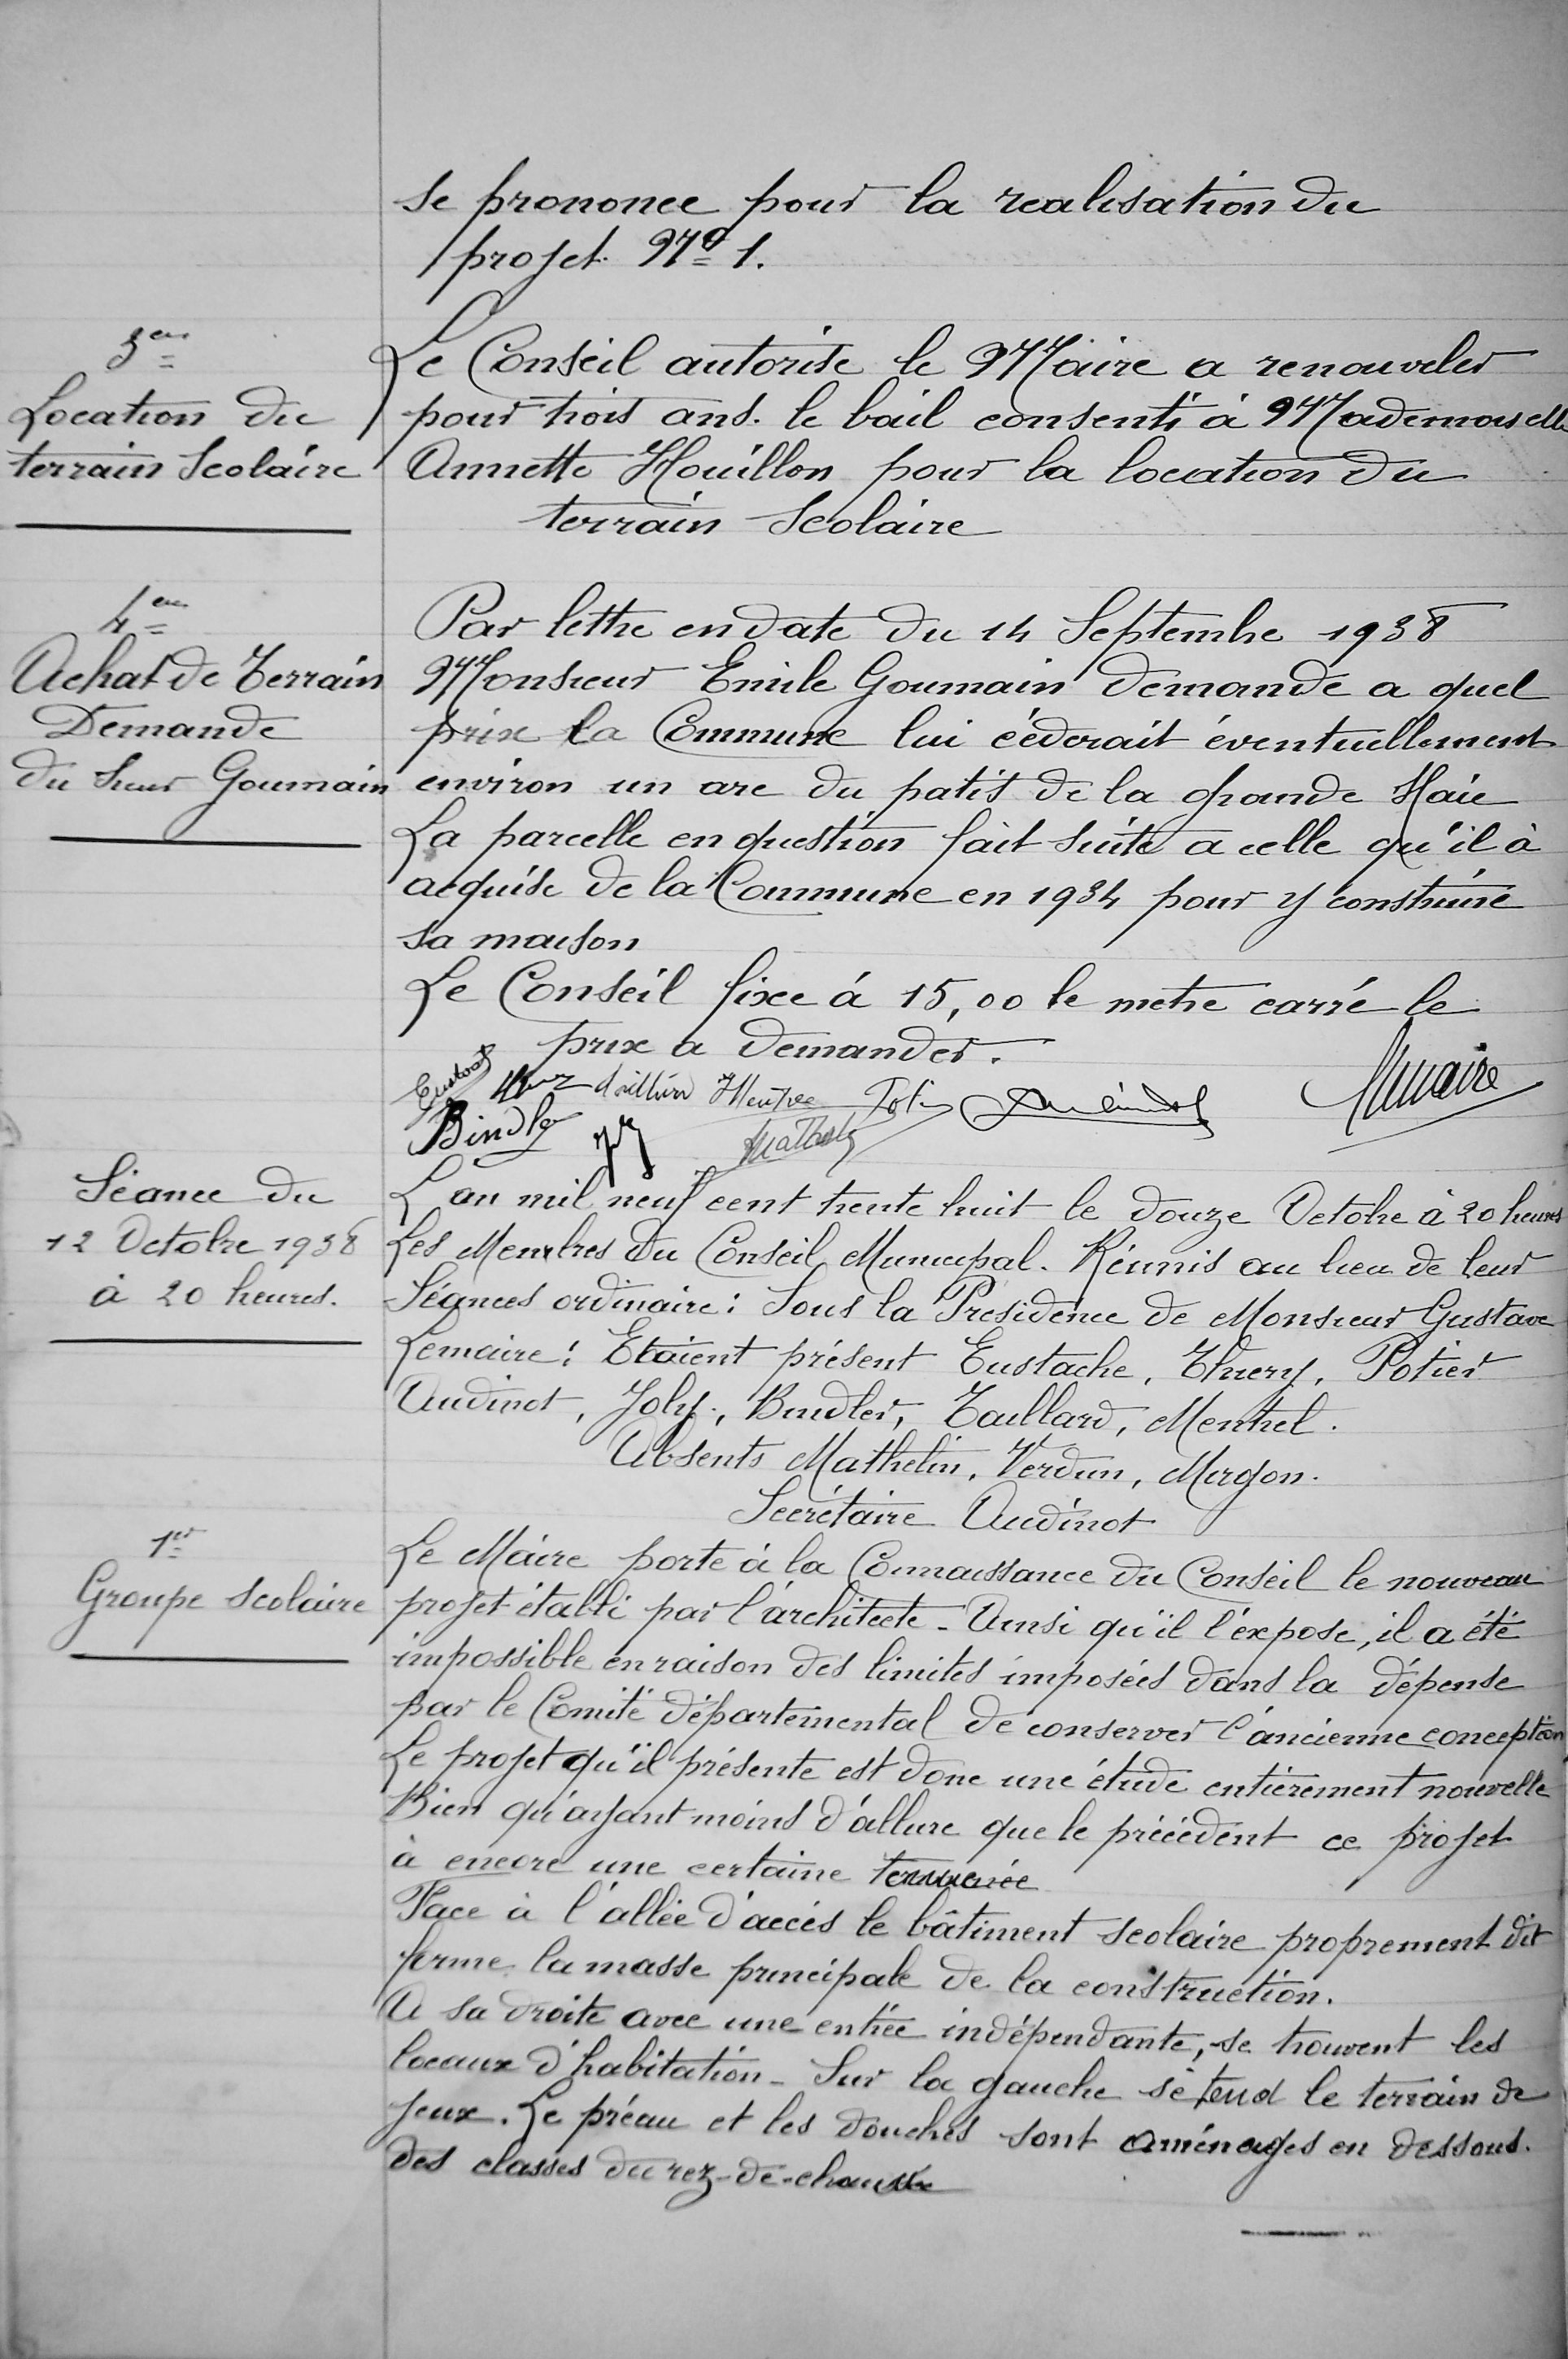 se prononce pour la realisation du
projet No 1.
3em
Location du
terrain Scolaire
Le Conseil autorise le Maire a renouveler
pour trois ans. le bail consenti à Mademoiselle
Annette Houillon pour la location du
terrain Scolaire
4em
Achat de Terrain
Demande
du Sieur Goumain
Par lettre en date du 14 Septembre 1938
Monsieur Emile Goumain demande a quel
prix la Commune lui céderait éventuellement
environ un are du patis de la grande Haie
La parcelle en question fait suite a celle qu'il à
acquise de la Commune en 1934 pour y construire
sa maison
Le Conseil fixe á 15,00 le metre carré le
prix a demander.
Bindler
Lemaire
Séance du
12 Octobre 1938
à 20 heures.
L'an mil neuf cent trente huit le douze Octobre à 20 heures
Les Membres du Conseil Municipal. Réunis au lieu de leur
Séances ordinaire : Sous la Présidence de Monsieur Gustave
Lemaire : Etaient présent Eustache, Thiery, Potier
Audinot, Joly, Bindler, Taillard, Mentrel.
Absents Mathelin, Verdun, Mirgon.
Secrétaire Audinot
1er
Groupe scolaire
Le Maire porte à la Connaissance du Conseil le nouveau
projet établi par l'architecte - Ainsi qu'il l'expose, il a été
impossible en raison des limites imposées dans la dépense
par le Comité départemental de conserver l'ancienne conception
Le projet qu'il présente est donc une étude entièrement nouvelle
Bien qu'ayant moins d'allure que le précédent ce projet
à encore une certaine
Face à l'allée d'accès le bâtiment scolaire proprement dit
forme la masse principale de la construction.
A sa droite avec une entrée indépendante, se trouvent les
locaux d'habitation - Sur la gauche s'étend le terrain de
jeux. Le préau et les douches sont aménagés en dessous.
des classes du rez-de-chaussée